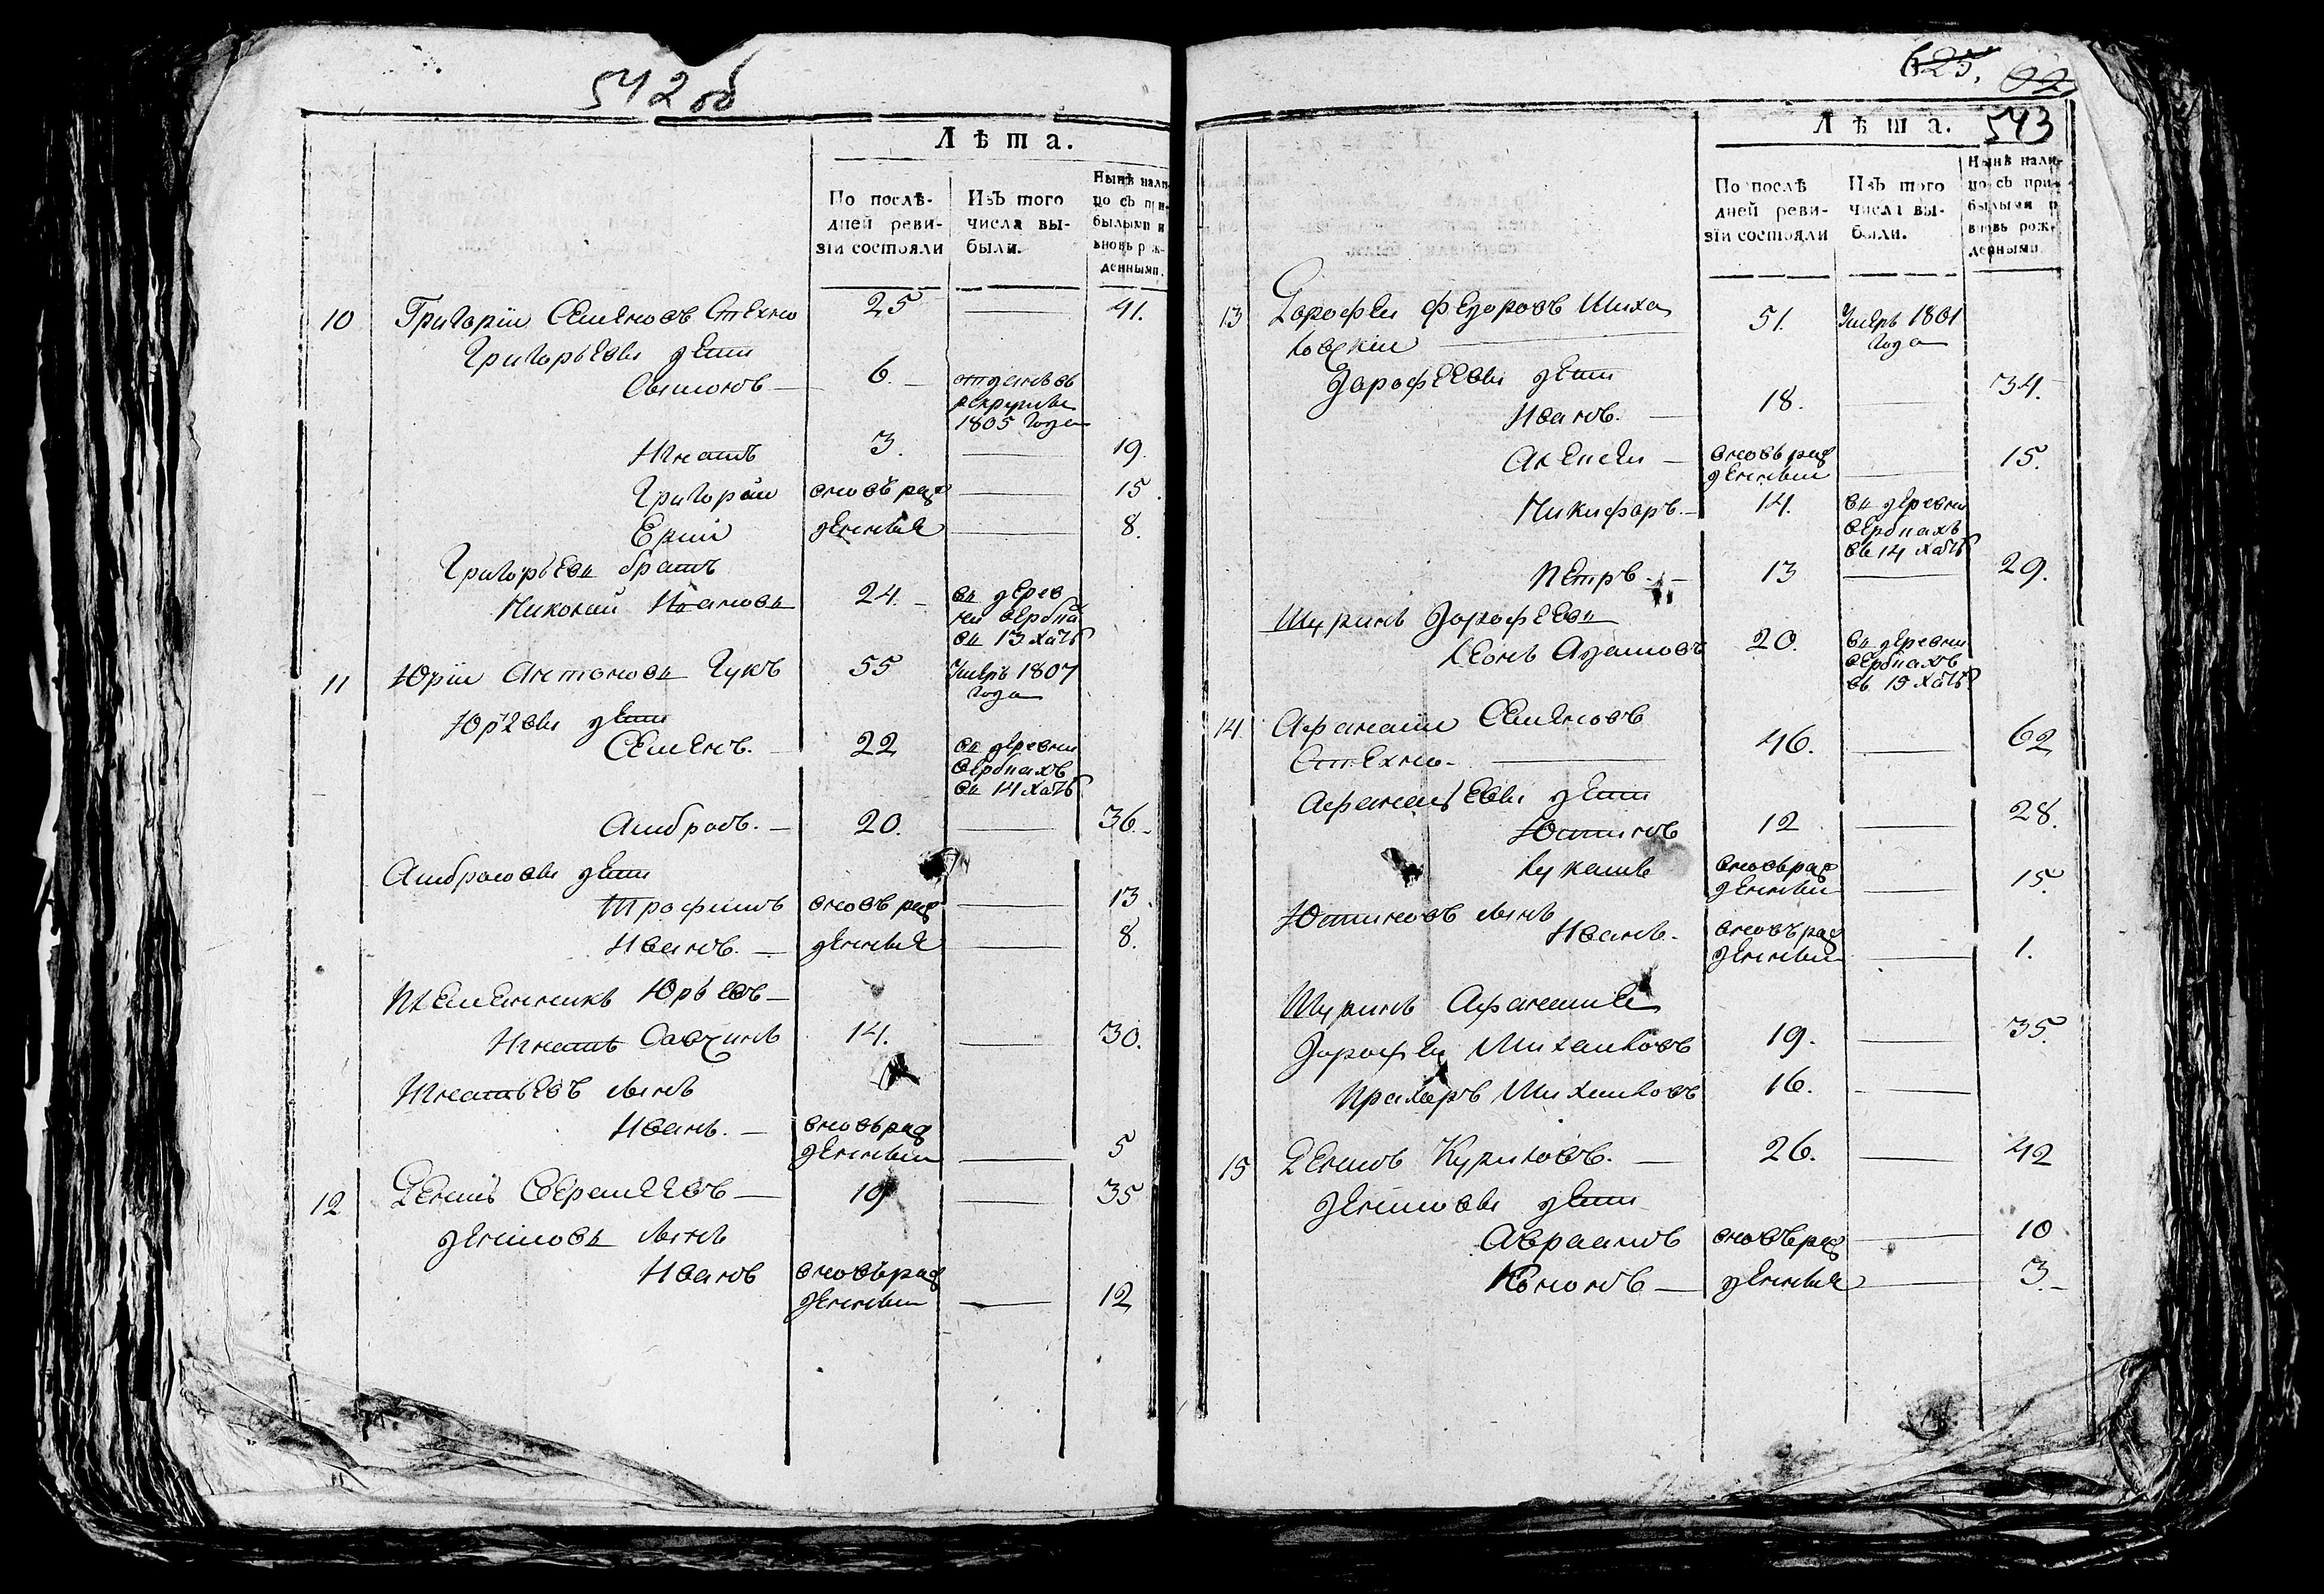 542 об
Лѣта.
По послѣ-
дней реви-
зіи состояли
Изъ того
числа вы-
были.
Нынѣ нали-
цо съ при-
былыми и
вновь рож-
денными.
10 Григоріи Семеновъ Стехно 25 — 41.
Григорьевы дети
Самсонъ — 6. — отданъ въ
рекруты
1805 года
Игнатъ 3. — 19.
Григорӥи вновь раж — 15.
Ерӥи денные — 8.
Григорьевъ братъ
Николай Ивановъ 24. — въ дерев
ни вербпа
въ 13 хатѣ
11 Юріи Антоновъ Гукъ 55 Умеръ 1807
года
Юрʼевы дети
Семенъ. — 22 въ деревни
вербпахъ
въ 14 хатѣ
Амбровъ. — 20. — 36.
Амбросовы дети
Трофимъ вновь раж — 13.
Иванъ. — денные — 8.
Племенникъ Юрьевъ —
Игнатъ Савчинъ 14. — 30.
Игнатьевъ сынъ
Иванъ. — вновь раж
денныи — 5
12 Денисъ Сергеевъ — 19 — 35
денисовъ сынъ
Иванъ вновь раж
денныи — 12
625. 62
Лѣта. 543
По послѣ
дней реви-
зіи состояли
Изъ того
числа вы-
были.
Нынѣ нали-
цо съ при-
былыми и
вновь рож-
денными
13 Дорофеи федоровъ Миха 51. Умеръ 1801
ловскіи — года
Дорофеевы дети
Иванъ. — 18. — 34.
Алексеи — вновь раж
денныи — 15.
Никифоръ. — 14. въ деревни
вербпахъ
въ 14 хатѣ
Петръ. — 13 — 29.
Шуринъ Дорофеевъ
Леонъ Адамовъ 20. въ деревни
вербпахъ
въ 15 хатѣ
14 Афанасіи Семеновъ
Стехно. — 46. — 62
Афанасьевы дети
Юстинъ 12 — 28.
Лукашъ вновь раж
денныи — 15.
Юстиновъ сынъ
Иванъ. вновь раж
денныи — 1.
Шуринъ Афанасіи
Дорофеи Михаиловъ 19. — 35.
Прахоръ Михаиловъ 16. —
15 Денисъ Куриловъ. — 26. — 42
денисовы дети
Авраамъ вновь раж — 10
Кононъ — денные — 3. —